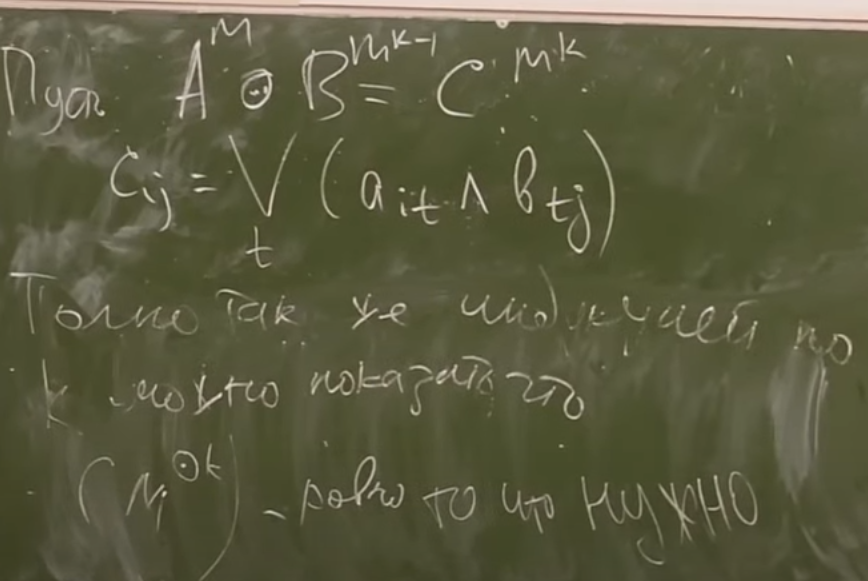 Пусть A^M ⊙ B^{M^{k-1}} = C^{M^k}
c_{ij} = ⋁_t (a_{it} ∧ b_{tj})
Точно так же индукцией по
k можно показать что
(M^{⊙k}) - ровно то что НУЖНО